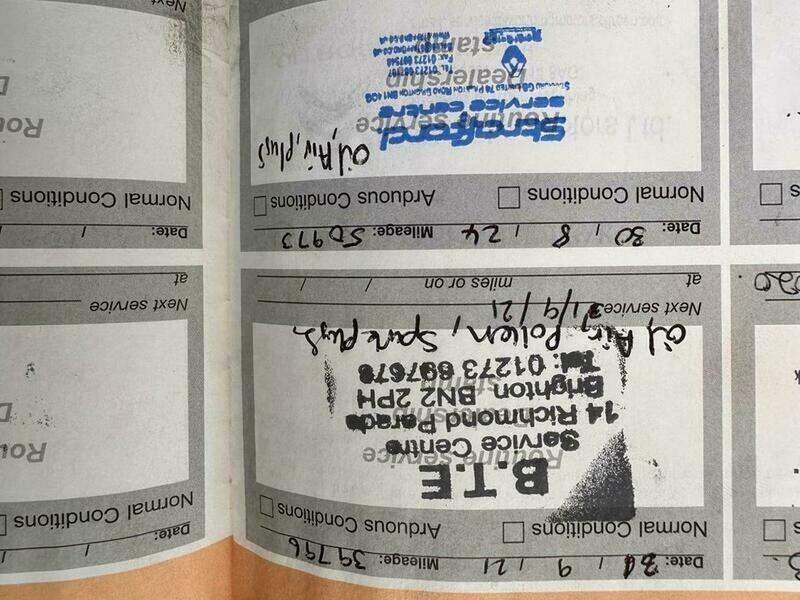 Date: / 9 / 21 Mileage: 39796
Normal Conditions Arduous Conditions
B.T.E
Routine service
Service Centre
14 Richmond Parade
Brighton BN2 2PH
Tel: 01273 697678
Oil, Air, Pollen, Spark plugs
Next service 31/9/21
at miles or on / /
Date: 30 / 8 / 24 Mileage: 50973
Normal Conditions Arduous Conditions
Oil, Air, plugs
Routine service
service centre
Dealership
stamp
Date: / /
Normal Conditions
Rou
Next service
at
Date: / /
Normal Conditions
Rou
Next